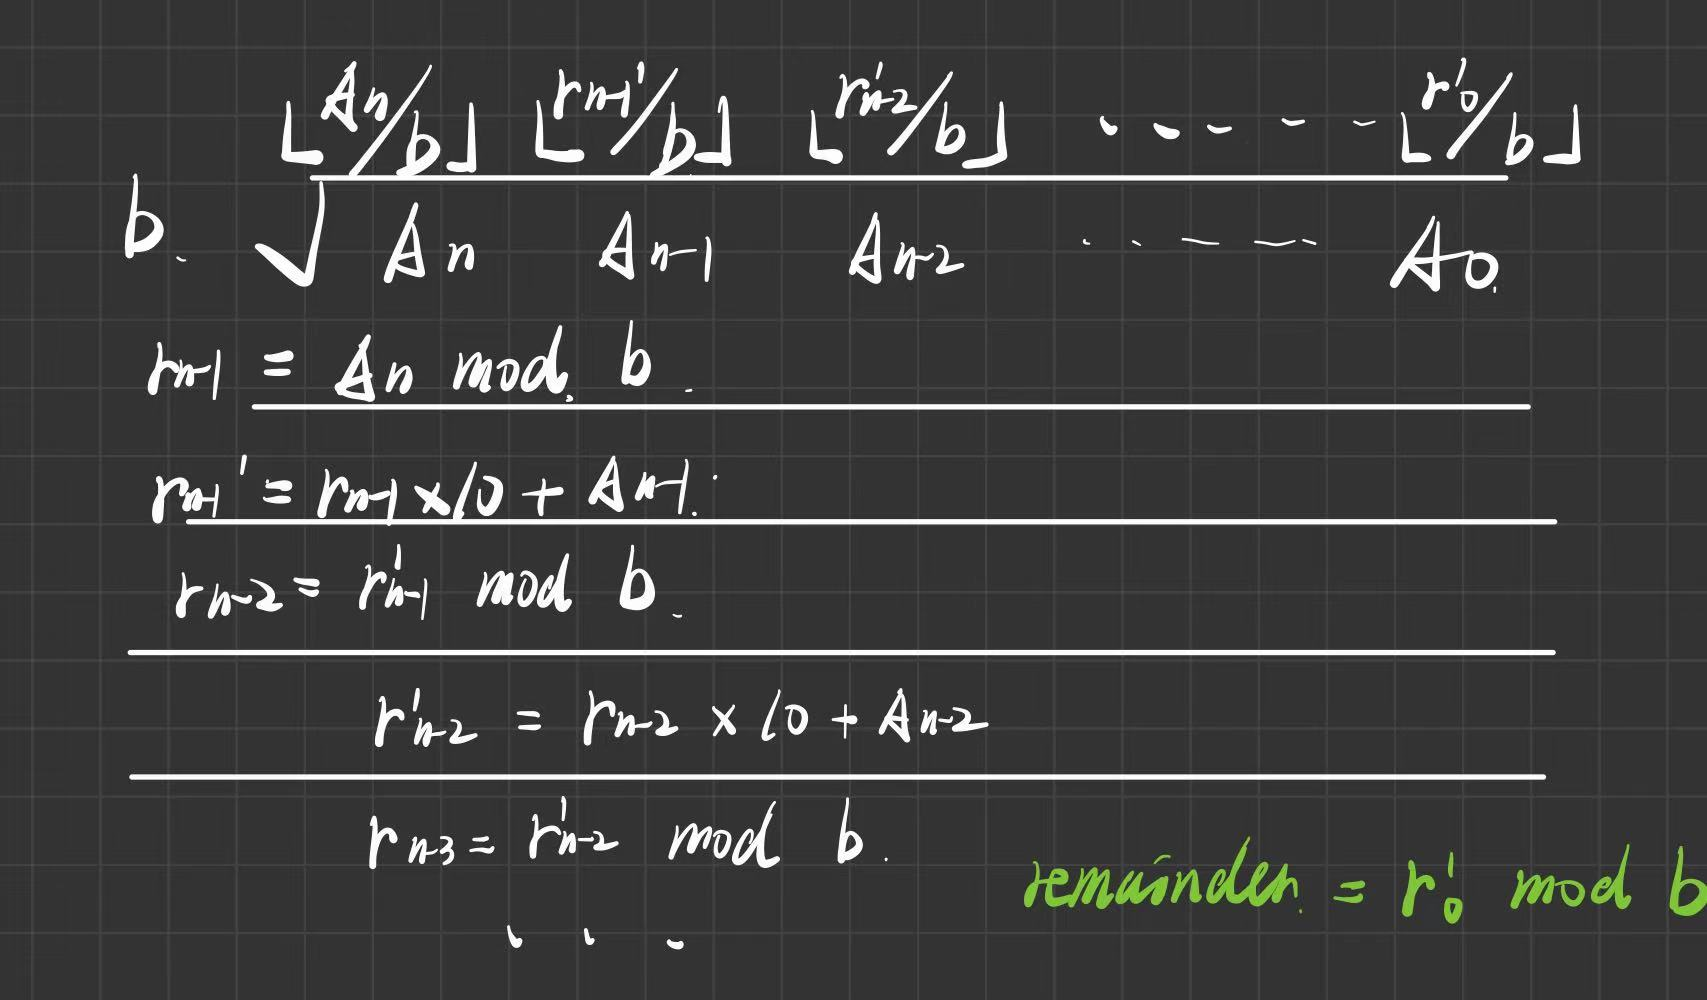 ⌊An/b⌋ ⌊rn-1'/b⌋ ⌊r'n-2/b⌋ ..---⌊r'0/b⌋
b. √ An An-1 An-2 ..--- A0.
rn-1 = An mod. b.
rn-1' = rn-1 ×10 + An-1.
rn-2 = r'n-1 mod b.
r'n-2 = rn-2 × 10 + An-2
rn-3 = r'n-2 mod b.
remainder. = r'0 mod b
...